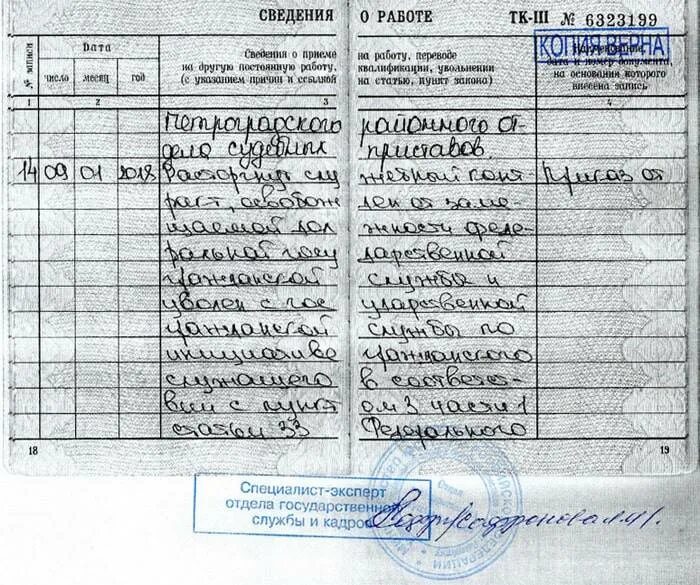 СВЕДЕНИЯ О РАБОТЕ ТК-III № 6323199
КОПИЯ ВЕРНА
№ записи
Дата
число месяц год
Сведения о приеме на работу, переводе
на другую постоянную работу, квалификации, увольнении
(с указанием причин и ссылкой на статью, пункт закона)
Наименование,
дата и номер документа,
на основании которого
внесена запись
1 2 3 4
Петроградского районного от-
дела судебных приставов.
14 09 01 2018 Расторгнут слу жебный конт Приказ от
ракт, освобож ден от заме-
щаемой дол жности феде-
ральной госу дарственной
гражданской службы и
уволен с гос ударственной
гражданской службы по
инициативе гражданского
служащего в соответс-
вии с пункт ом 3 части 1
статьи 33 Федерального
18 19
Специалист-эксперт
отдела государственной
службы и кадров